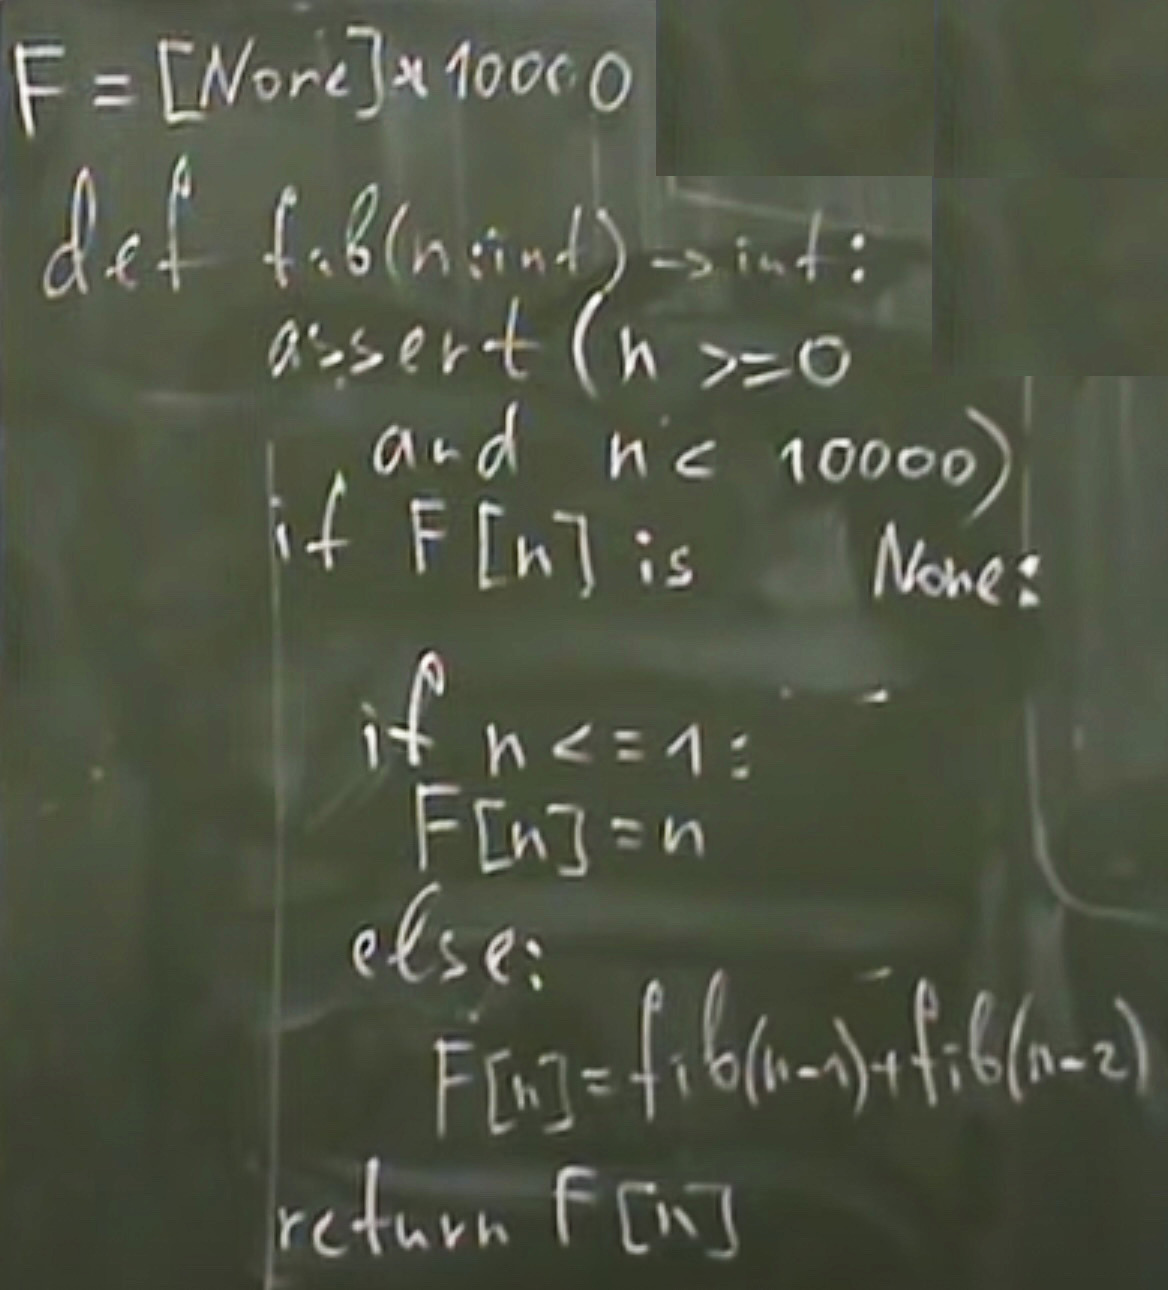 F = [None]*10000
def fib(n:int)->int:
assert (n >=0
and n < 10000)
if F[n] is None:
if n <= 1:
F[n] = n
else:
F[n] = fib(n-1)+fib(n-2)
return F[n]